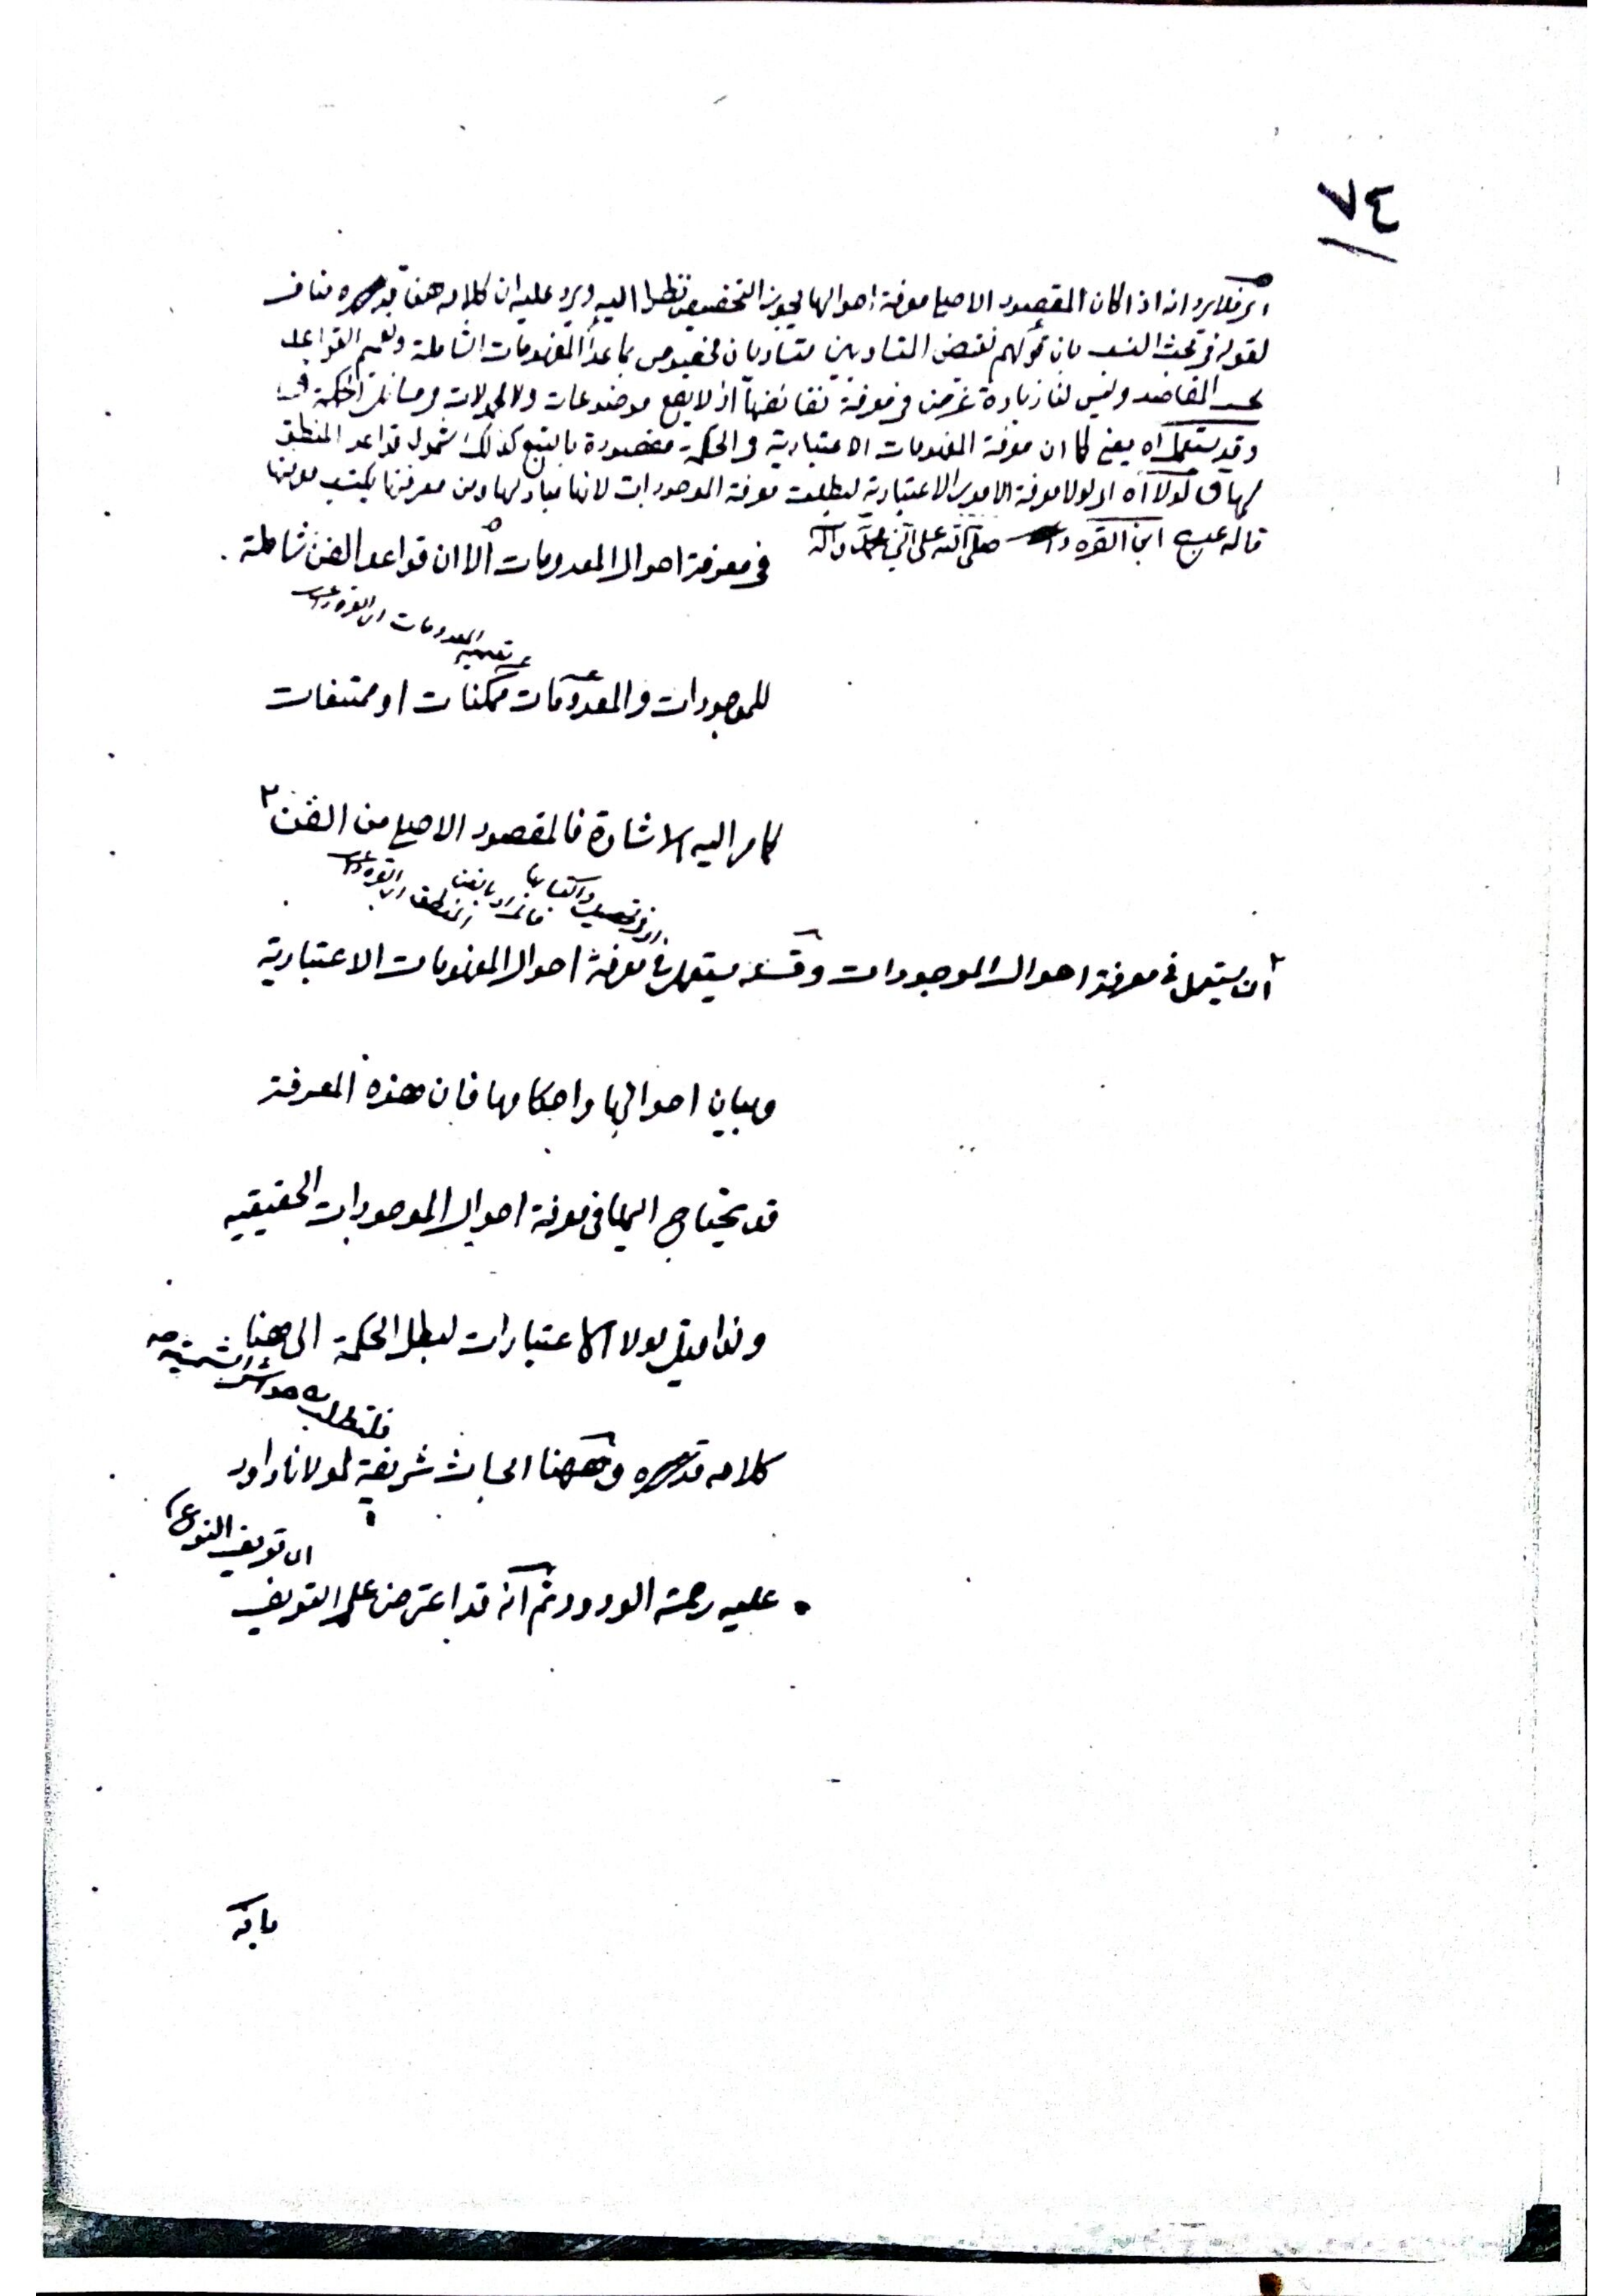 ٧٤
فلا يرد انه اذا كان المقصود الاصلى معرفة احوالها يجوز التخصيص نظرا اليه ويرد عليه ان كلامه هنا قدس سره مناف
لقوله فى بحث النسب بان قولهم نقيض المتساويين متساويان مخصوص بما عدا المفهومات الشاملة وتعميم القواعد
بحسب المقاصد وليس لنا زيادة غرض فى معرفة نقائضها اذ لا يقع موضوعات ولا محمولات فى مسائل الحكمة
وقد يستعمل اه يعنى كما ان معرفة المفهومات الاعتبارية فى الحكمة مقصودة بالتبع كذلك شمول قواعد المنطق
لها لولا اه اى لولا معرفة الامور الاعتبارية لبطلت معرفة الموجودات لانها مباد لها ومن معرفتها يكتسب معرفتها
قاله ابن القره داغى صلى الله على النبى محمد وآله
فى معرفة احوال المعدومات الا ان قواعد الفن شاملة
تعميم المعدومات ابن القره داغى
للموجودات والمعدومات ممكنات او ممتنعات
كما مر اليه الاشارة فالمقصود الاصلى من الفن ٢
فالمراد بالفن المنطق ابن القره داغى
٢ ان يستعمل فى معرفة احوال الموجودات وقد يستعمل فى معرفة احوال المفهومات الاعتبارية
وبيان احوالها واحكامها فان هذه المعرفة
قد يحتاج اليها فى معرفة احوال الموجودات الحقيقيه
ولذا قيل لولا الاعتبارات لبطل الحكمة الى هنا
فلتطلب
كلامه قدس سره وههنا ابحاث شريفة لمولانا داود
اى تعريف النوع
عليه رحمة الودود ثم انه قد اعترض على التعريف
بانه